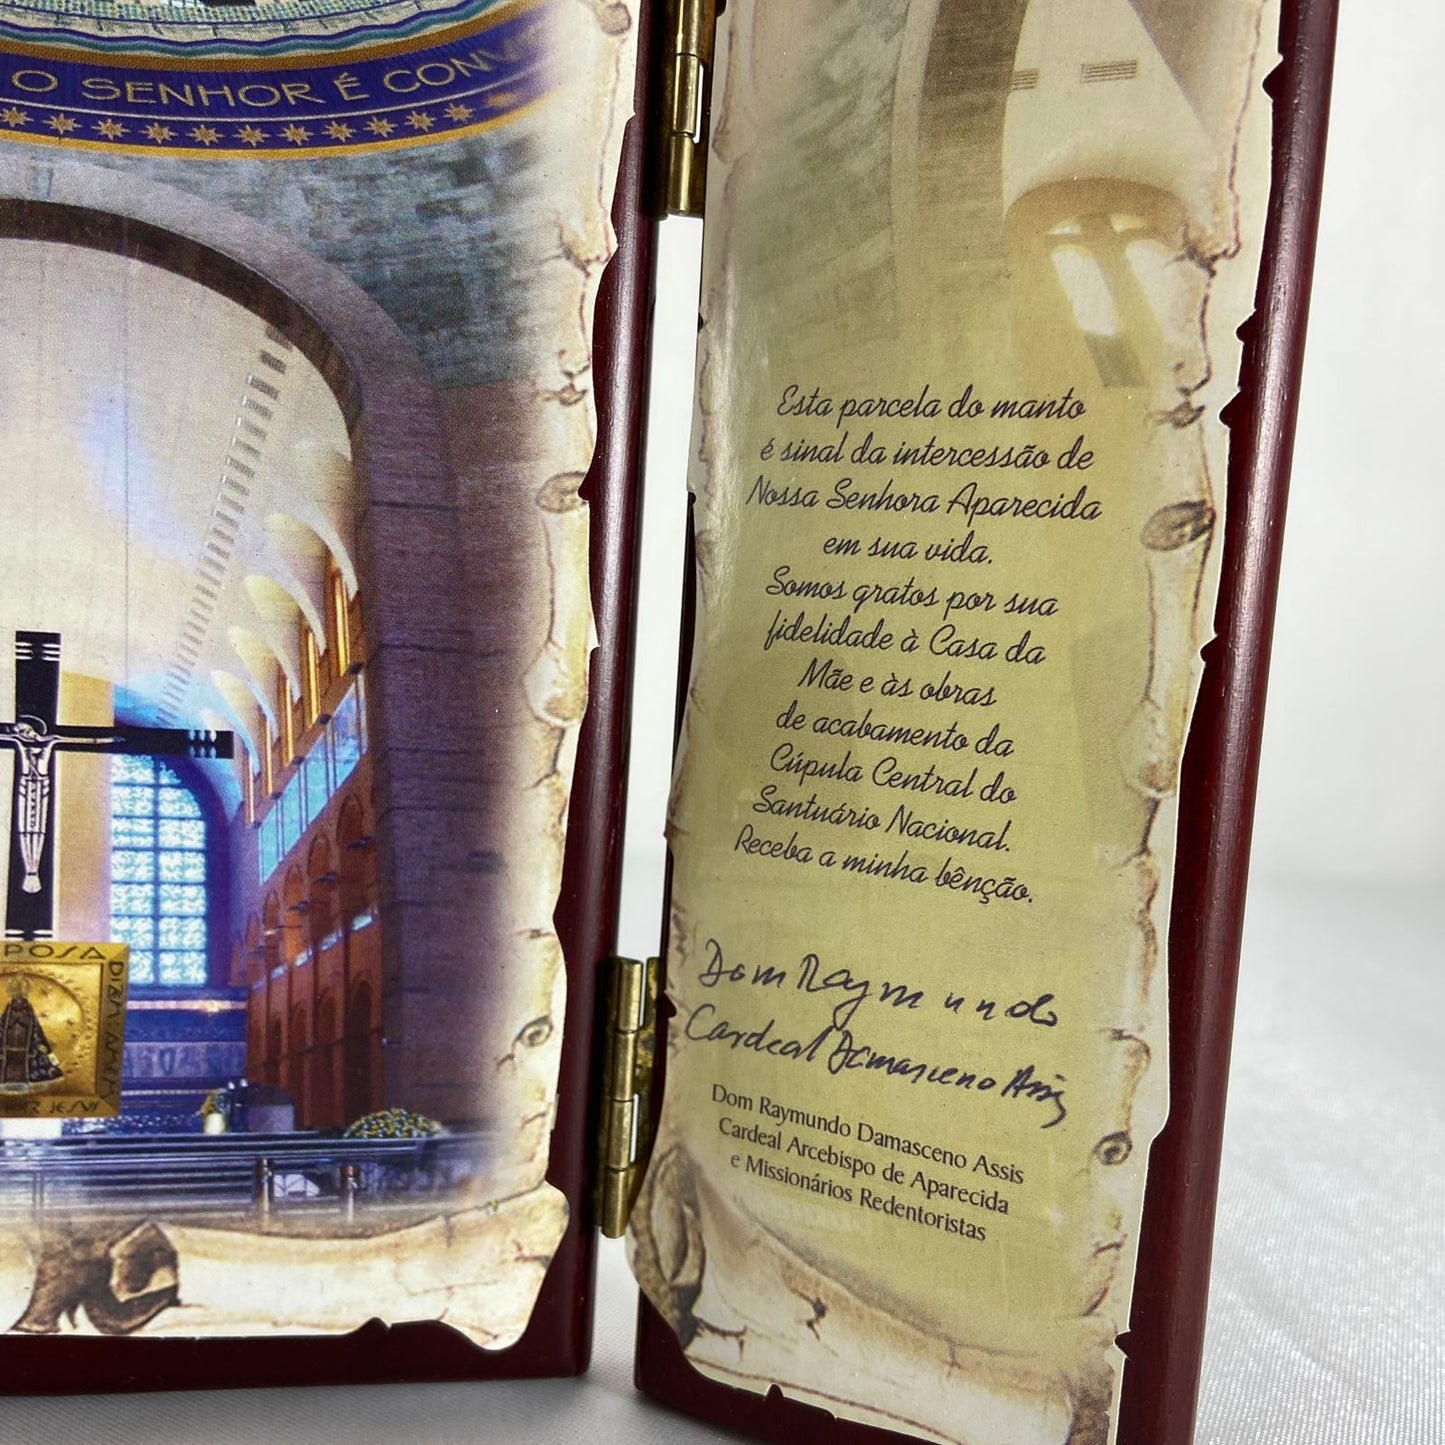 O SENHOR É CONV
POSA
Esta parcela do manto
é sinal da intercessão de
Nossa Senhora Aparecida
em sua vida.
Somos gratos por sua
fidelidade à Casa da
Mãe e às obras
de acabamento da
Cúpula Central do
Santuário Nacional.
Receba a minha bênção.
Dom Raymundo
Cardeal Damasceno Assis
Dom Raymundo Damasceno Assis
Cardeal Arcebispo de Aparecida
e Missionários Redentoristas